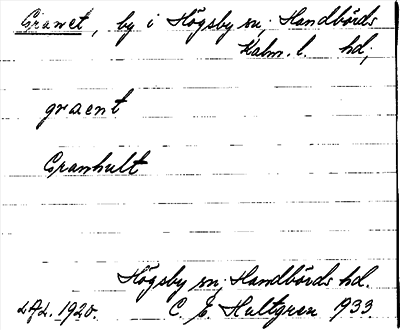 Granet, by i Högsby sn, Handbörds
Kalm. l. hd,
graent
Granhult
Högsby sn, Handbörds hd.
LAL. 1920. C. E. Hultgren 1933